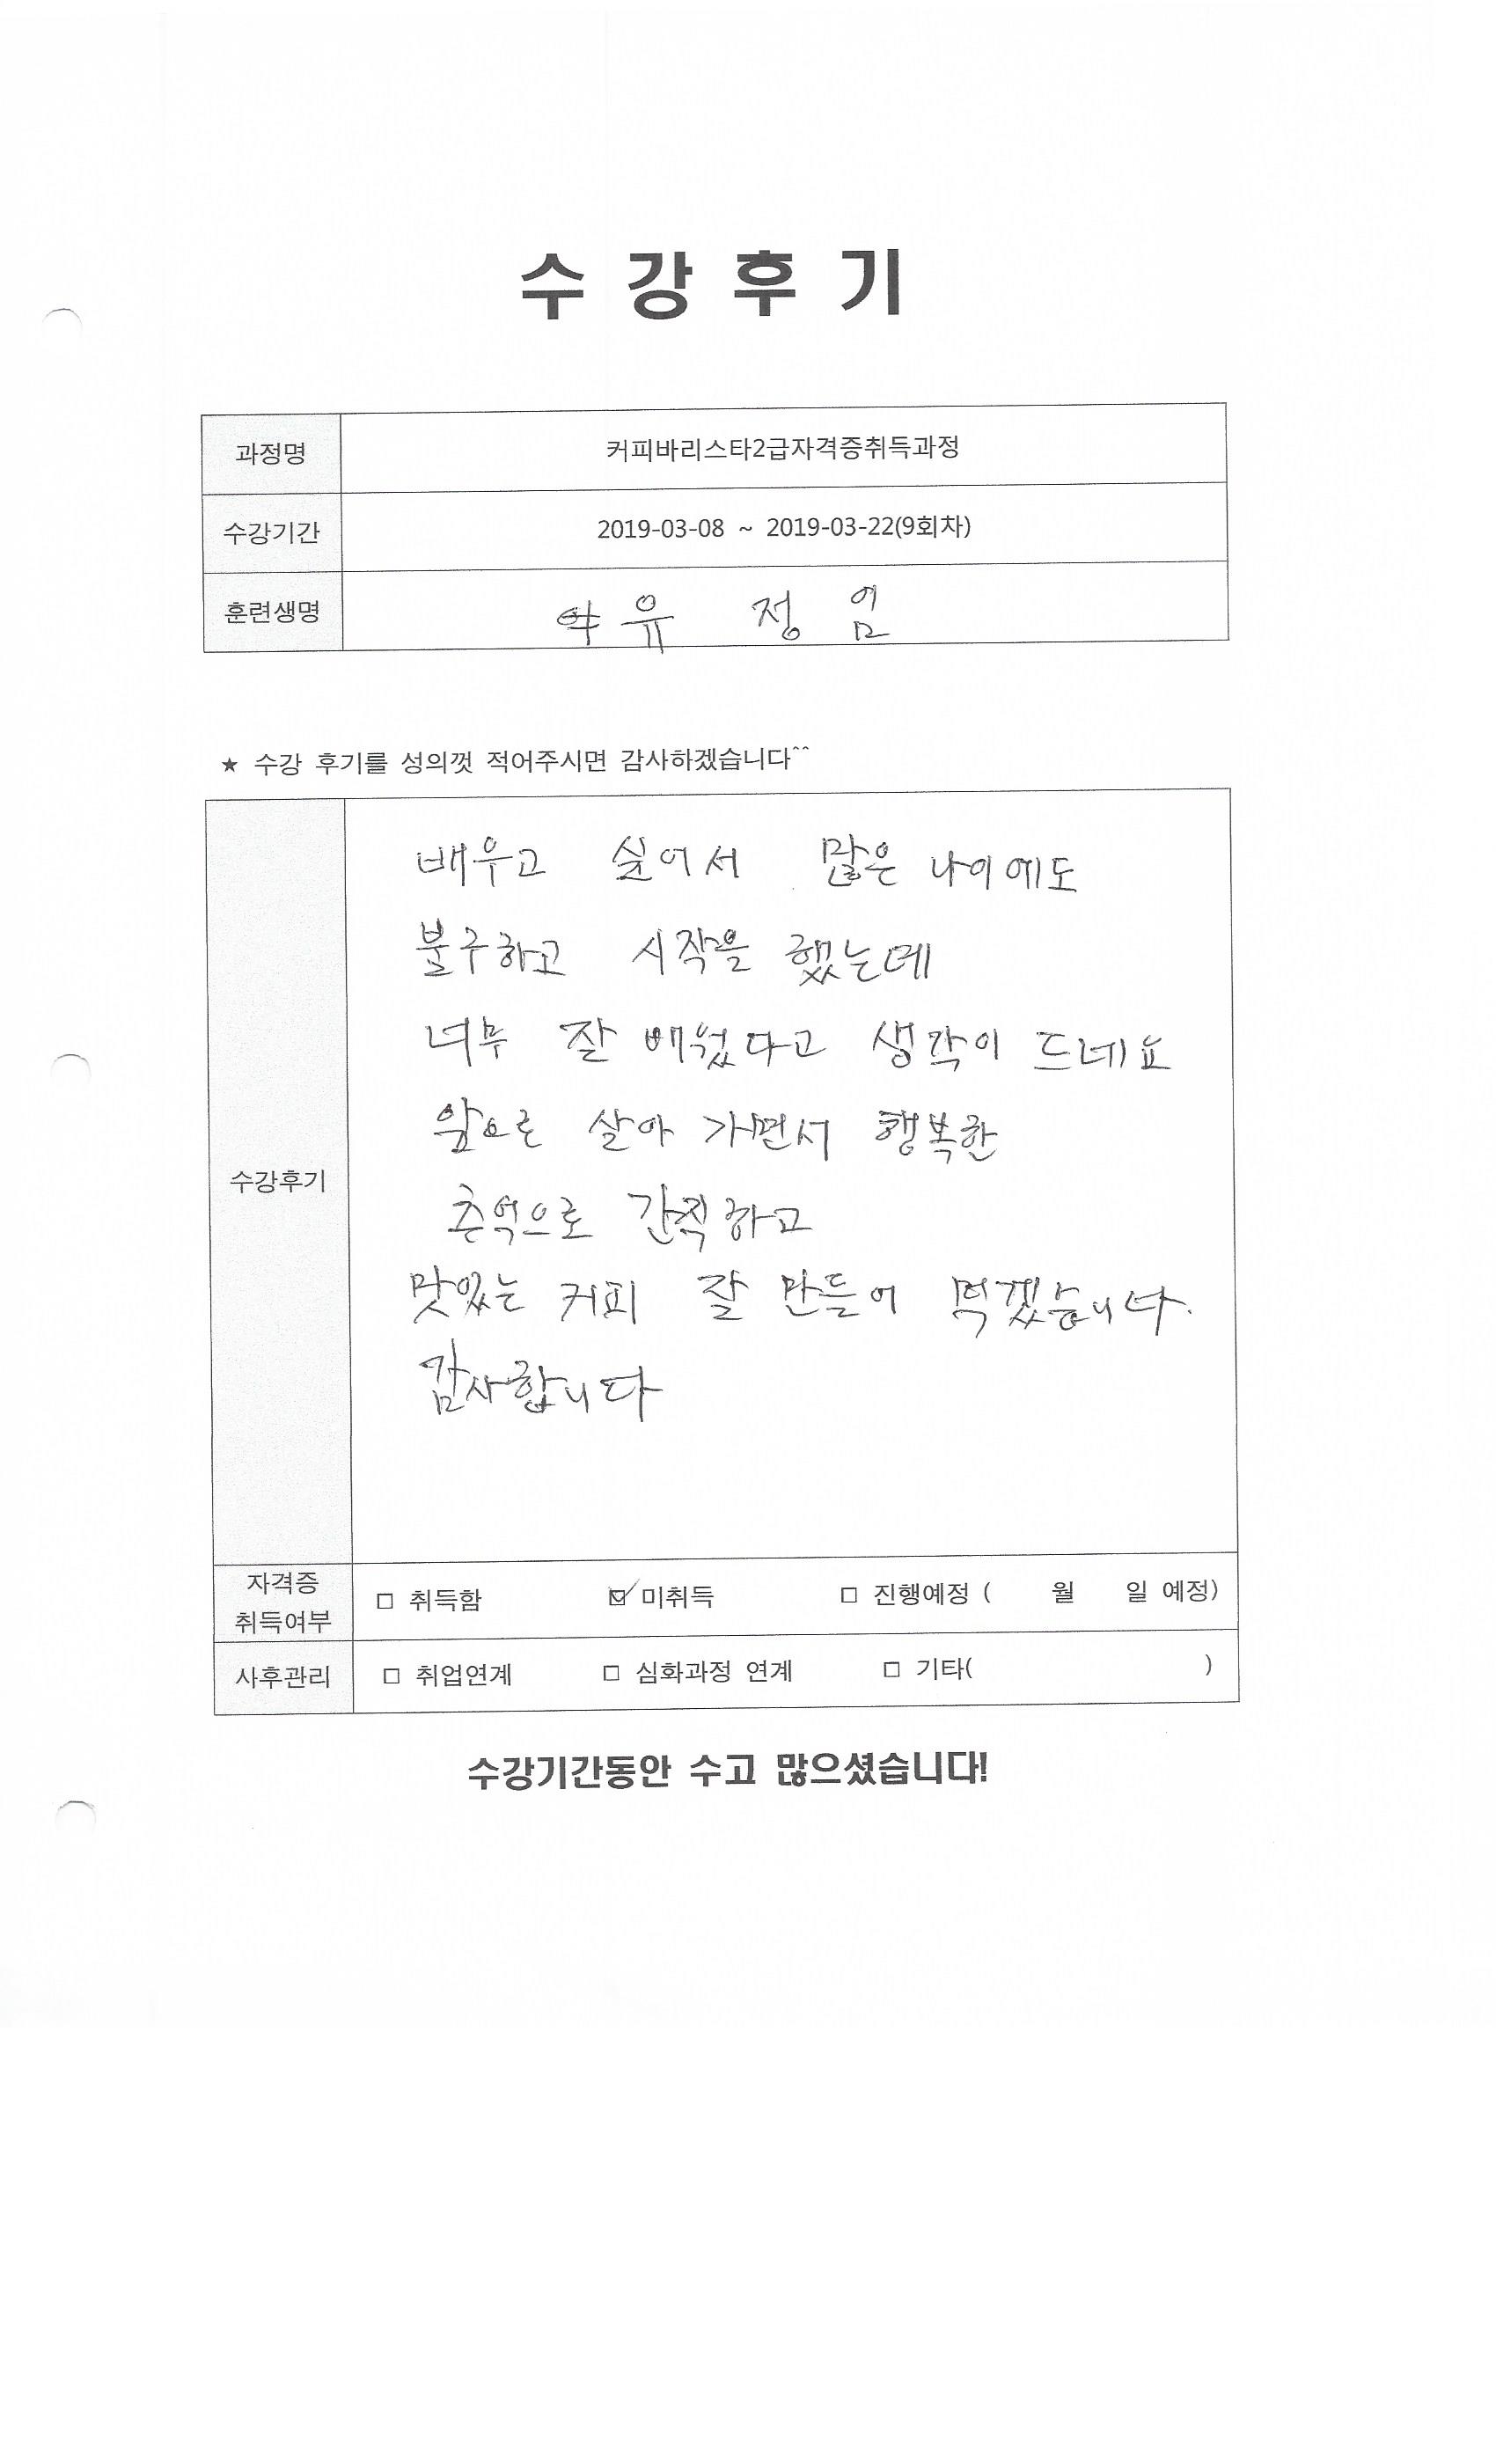 수 강 후 기
과정명 커피바리스타2급자격증취득과정
수강기간 2019-03-08 ~ 2019-03-22(9회차)
훈련생명 유 정 임
★ 수강 후기를 성의껏 적어주시면 감사하겠습니다^^
수강후기
배우고 싶어서 많은 나이에도
불구하고 시작을 했는데
너무 잘 배웠다고 생각이 드네요
앞으로 살아 가면서 행복한
추억으로 간직하고
맛있는 커피 잘 만들어 먹겠습니다.
감사합니다
자격증 취득여부 □ 취득함 ☑ 미취득 □ 진행예정 ( 월 일 예정)
사후관리 □ 취업연계 □ 심화과정 연계 □ 기타( )
수강기간동안 수고 많으셨습니다!